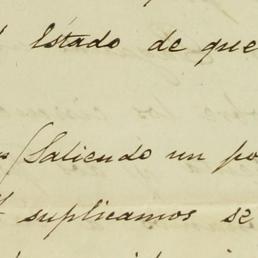 Estado de que
Saliendo un po
suplicamos se